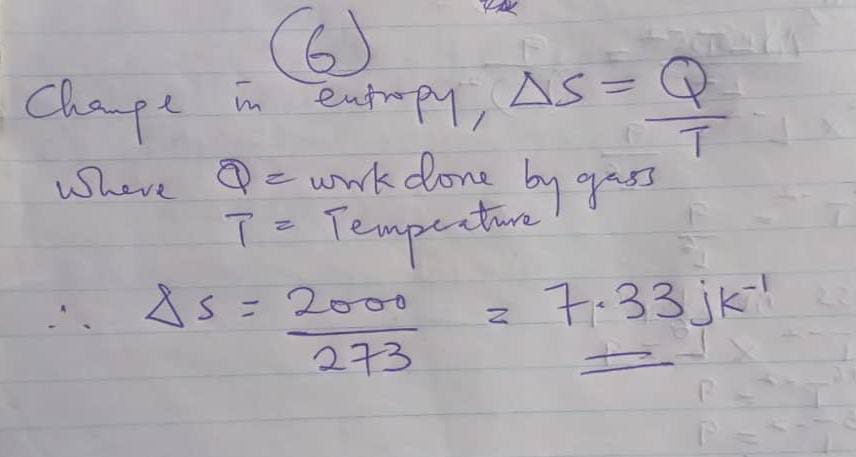 (6)
Change in entropy, ΔS = Q/T
where Q = work done by gass
T = Temperature
∴ ΔS = 2000/273 = 7.33 jk⁻¹